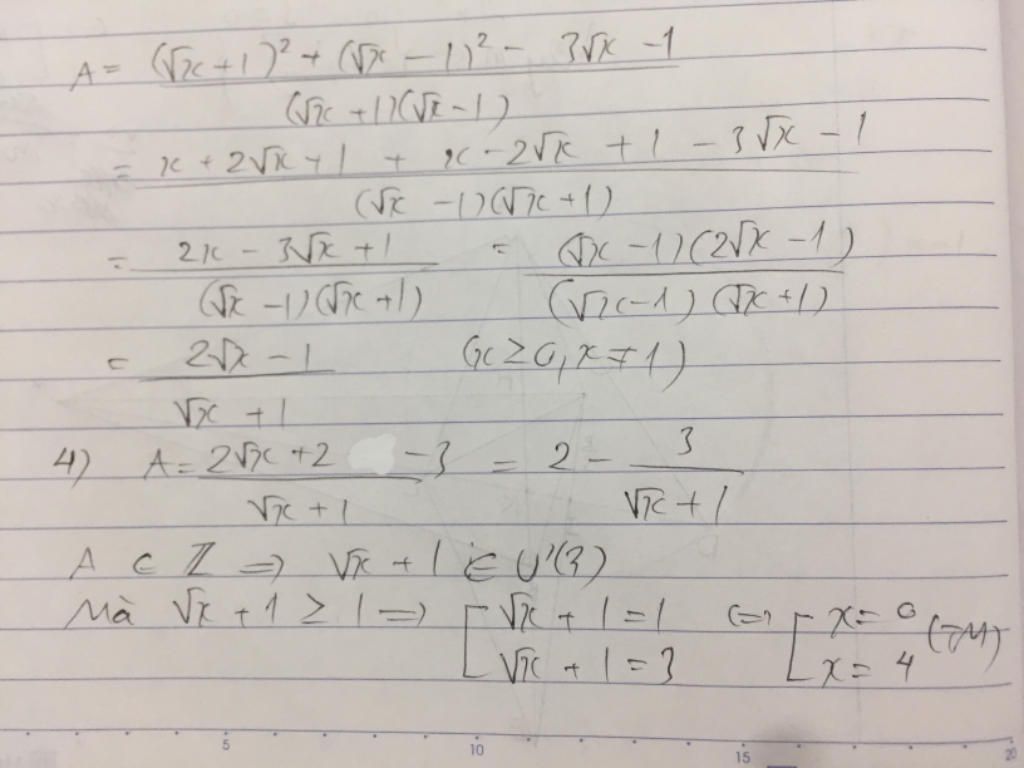 A = ((√x + 1)² + (√x - 1)² - 3√x - 1) / ((√x + 1)(√x - 1))
= (x + 2√x + 1 + x - 2√x + 1 - 3√x - 1) / ((√x - 1)(√x + 1))
= (2x - 3√x + 1) / ((√x - 1)(√x + 1)) = ((√x - 1)(2√x - 1)) / ((√x - 1)(√x + 1))
= (2√x - 1) / (√x + 1) (x ≥ 0, x ≠ 1)
4) A = (2√x + 2 - 3) / (√x + 1) = 2 - 3 / (√x + 1)
A ∈ ℤ => √x + 1 ∈ Ư(3)
Mà √x + 1 ≥ 1 => [ √x + 1 = 1 <=> [ x = 0 (TM)
√x + 1 = 3 x = 4
5 10 15 20